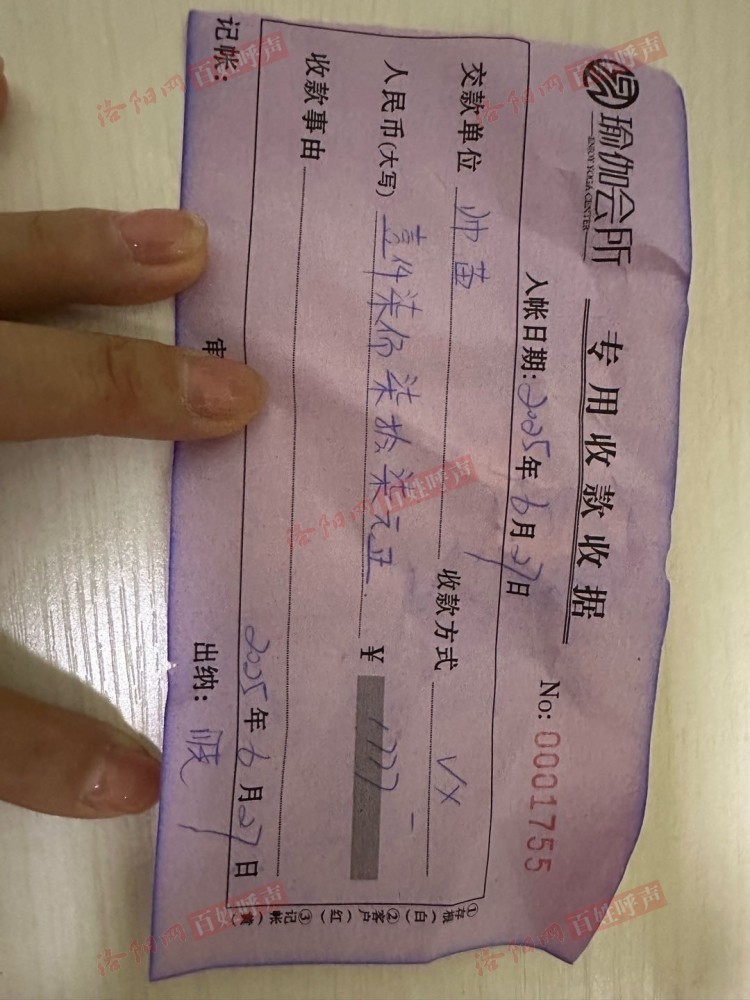 瑜伽会所 专用收款收据
ENJOY YOGA CENTER
No: 0001755
入帐日期: 2025年6月27日
交款单位 帅苗 收款方式 VX
人民币(大写) 壹仟柒佰柒拾柒元正 ¥ 1777
收款事由
2025年6月27日
记帐: 审 出纳:
①存根(白)②客户(红)③记帐(黄)
洛阳网百姓呼声
洛阳网百姓呼声
洛阳网百姓呼声
洛阳网百姓呼声
洛阳网百姓呼声
洛阳网百姓呼声